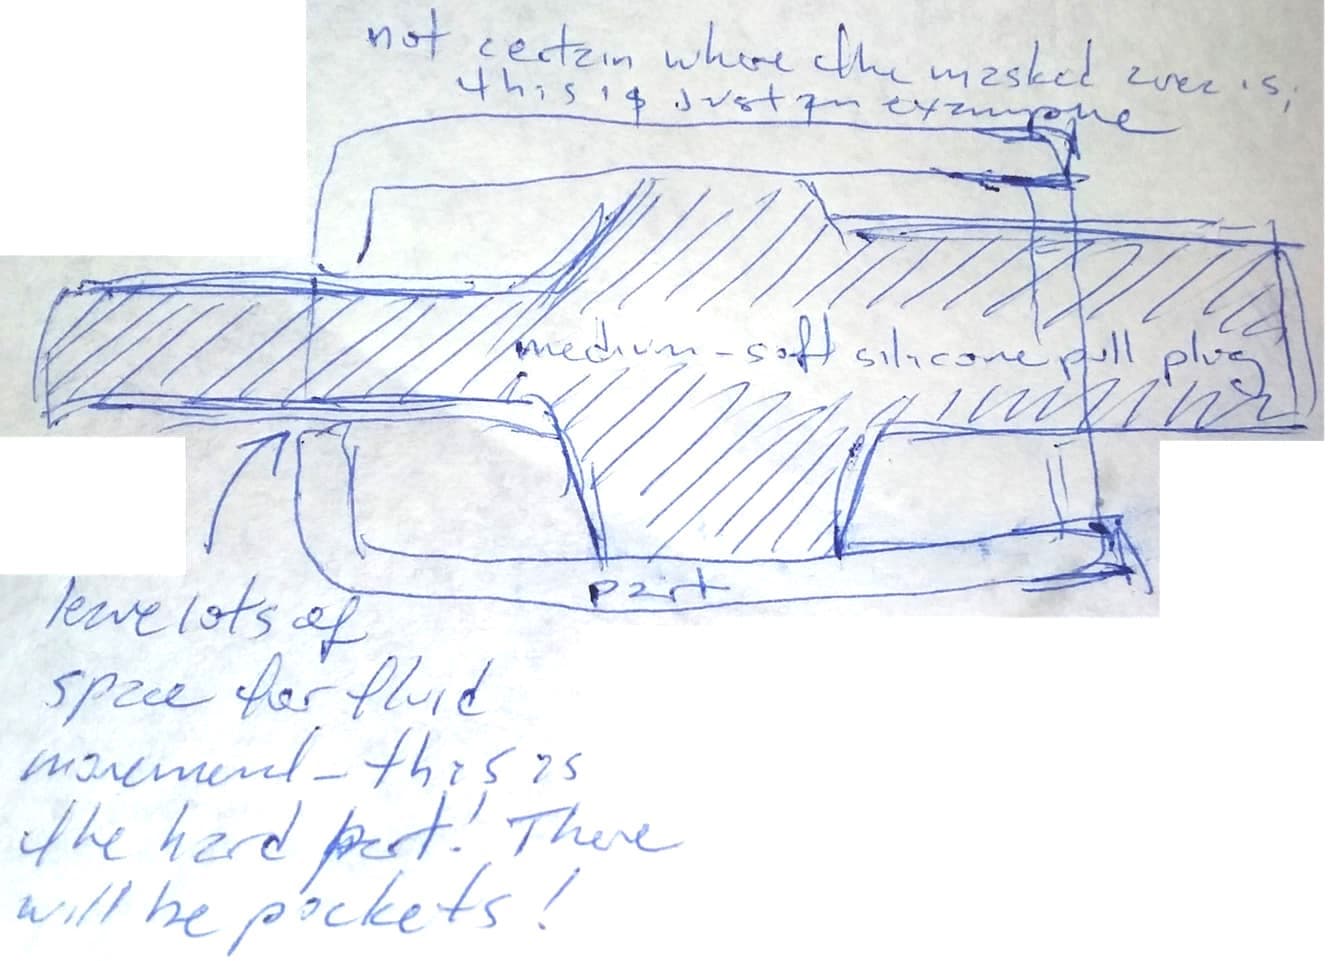 not certain where the masked area is;
this is just an example
medium-soft silicone pull plug
part
leave lots of
space for fluid
movement - this is
the hard part! There
will be pockets!